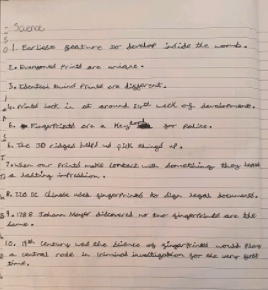 - Science
1. Earliest feature to develop inside the womb.
2. Everyones Prints are unique.
3. Identical twins Prints are different.
4. Prints lock in at around week of development.
5. Fingerprints are a Key for Police.
6. The 3D ridges help us pick things up.
7. When our Prints make contact with something they leave
a lasting impression.
8. 220 BC Chinese used fingerprints to sign legal documents.
9. 1788 Johann discovered no two fingerprints are the
same.
10. 19th Century was the science of fingerprints would play
a central role in criminal investigation for the very first
time.